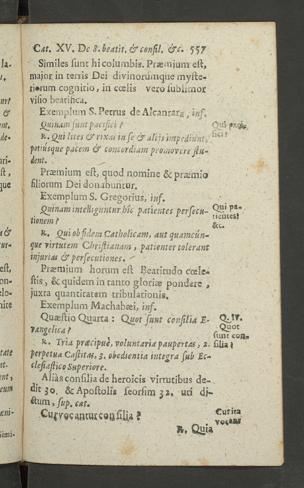 Cat. XV. De 8. beatit. & consil. &c. 557
Similes sunt hi columbis. Præmium est,
major in terris Dei divinorumque myste-
riorum cognitio, in cœlis vero sublimior
visio beatifica.
Exemplum S. Petrus de Alcantara, inf.
Quinam sunt pacifici?
R. Qui lites & rixas in se & aliis impediunt,
potiusque pacem & concordiam promovere stu-
dent.
Præmium est, quod nomine & præmio
filiorum Dei donabuntur.
Exemplum S. Gregorius, inf.
Quinam intelliguntur hîc patientes persecu-
tionem?
R. Qui ob fidem Catholicam, aut quamcûn-
que virtutem Christianam, patienter tolerant
injurias & persecutiones.
Præmium horum est Beatitudo cœle-
stis, & quidem in tanto gloriæ pondere,
juxta quantitatem tribulationis.
Exemplum Machabæi, inf.
Quæstio Quarta: Quot sunt consilia E-
vangelica?
R. Tria præcipuè, voluntaria paupertas, 2.
perpetua Castitas, 3. obedientia integra sub Ec-
clesiastico Superiore.
Alias consilia de heroicis virtutibus de-
dit 30. & Apostolis seorsim 32. uti di-
ctum, sup. cat.
Cur vocantur consilia?
R. Quia
Qui paci-
fici?
Qui pa-
tientes?
&c.
Q. IV.
Quot
sunt con-
silia?
Cur ita
vocant